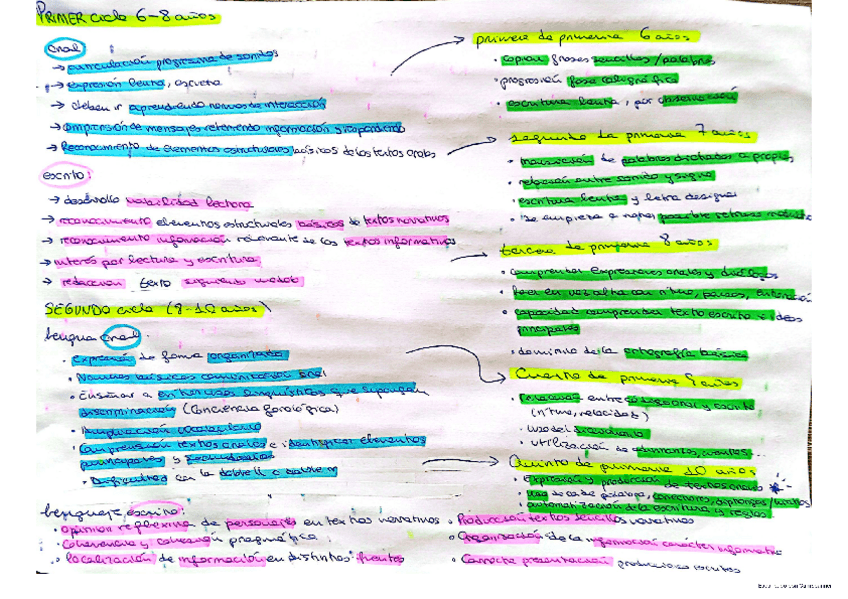 PRIMER ciclo 6-8 años
oral
→ articulación progresiva de sonidos
→ expresión lenta,
→ deben ir aprendiendo normas de interacción
→ comprensión de mensajes reteniendo información y respondiendo
→ Reconocimiento de elementos estructurales básicos de los textos orales
escrito:
→ desarrollo habilidad lectora
→ reconocimiento elementos estructurales básicos de textos narrativos
→ reconocimiento información relevante de los textos informativos
→ interés por lectura y escritura
→ redacción texto siguiendo modelo
SEGUNDO ciclo (8-10 años)
Lengua oral
• Expresión de forma organizada
• Normas básicas comunicación oral
• Enseñar a en han usos lingüísticos que supongan
discriminación (conciencia fonológica)
• Ampliación vocabulario
• Comprensión textos orales e identificar elementos
principales y secundarios
• Dificultades con la doble ll o doble rr
Lenguaje escrito:
• Opinión reflexiva de personajes en textos narrativos
• Coherencia y cohesión pragmática
• localización de información en distintas fuentes
primero de primaria 6 años
• copian frases sencillas/palabras
• progresión fase caligráfica
• escritura lenta, por observación
segundo de primaria 7 años
• transición de palabras dictadas a propias
• relación entre sonido y signo
• escritura lenta y letra desigual
• se empieza a notar posible retraso
tercero de primaria 8 años
• comprender expresiones orales y diálogos
• leer en voz alta con ritmo, pausas, entonación
• capacidad comprender texto escrito e ideas
principales
• dominio de la ortografía básica
Cuarto de primaria 9 años
• entre código oral y escrito
(ritmo, velocidad)
• uso del diccionario
• utilización de
Quinto de primaria 10 años
• Expresión y producción de textos orales
• uso de conectores, diptongos/
• automatización de la escritura y reglas
• Producción textos sencillos narrativos
• Organización de la información carácter informativo
• Correcta presentación producciones escritas